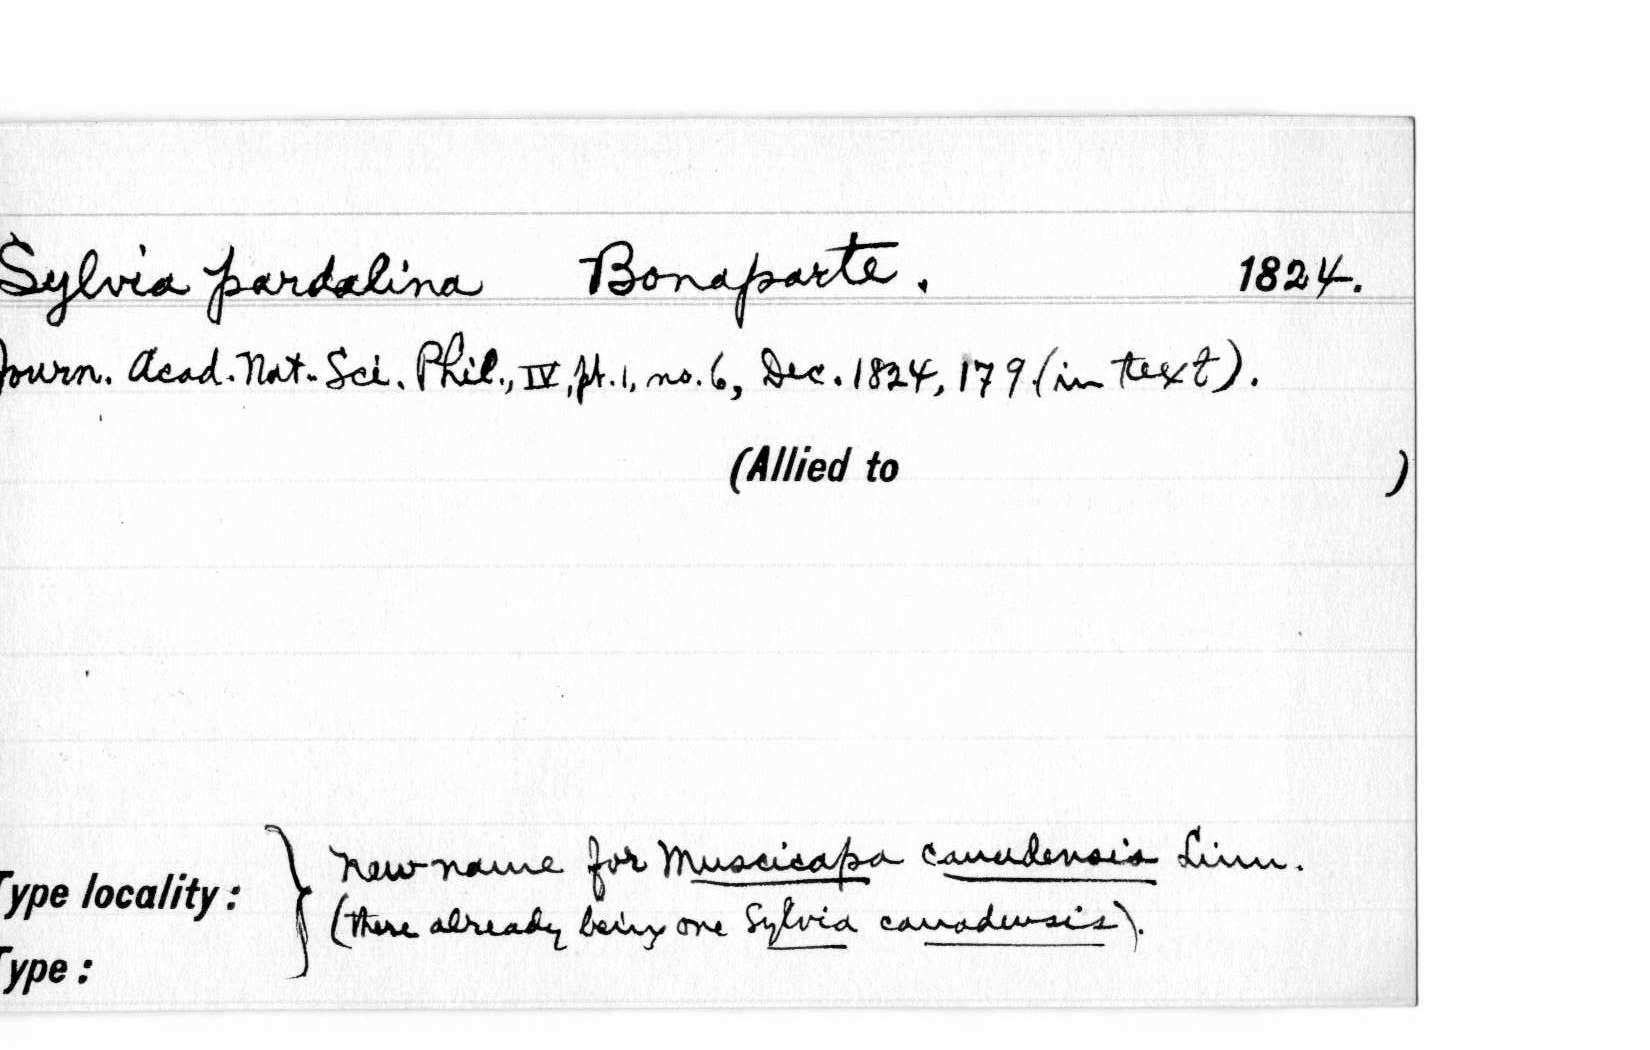 Sylvia pardalina Bonaparte. 1824.
Journ. Acad. Nat. Sci. Phil., IV, pt. 1, no. 6, Dec. 1824, 179 (in text).
(Allied to )
new name for Muscicapa canadensis Linn.
Type locality:
(there already being one Sylvia canadensis).
Type: